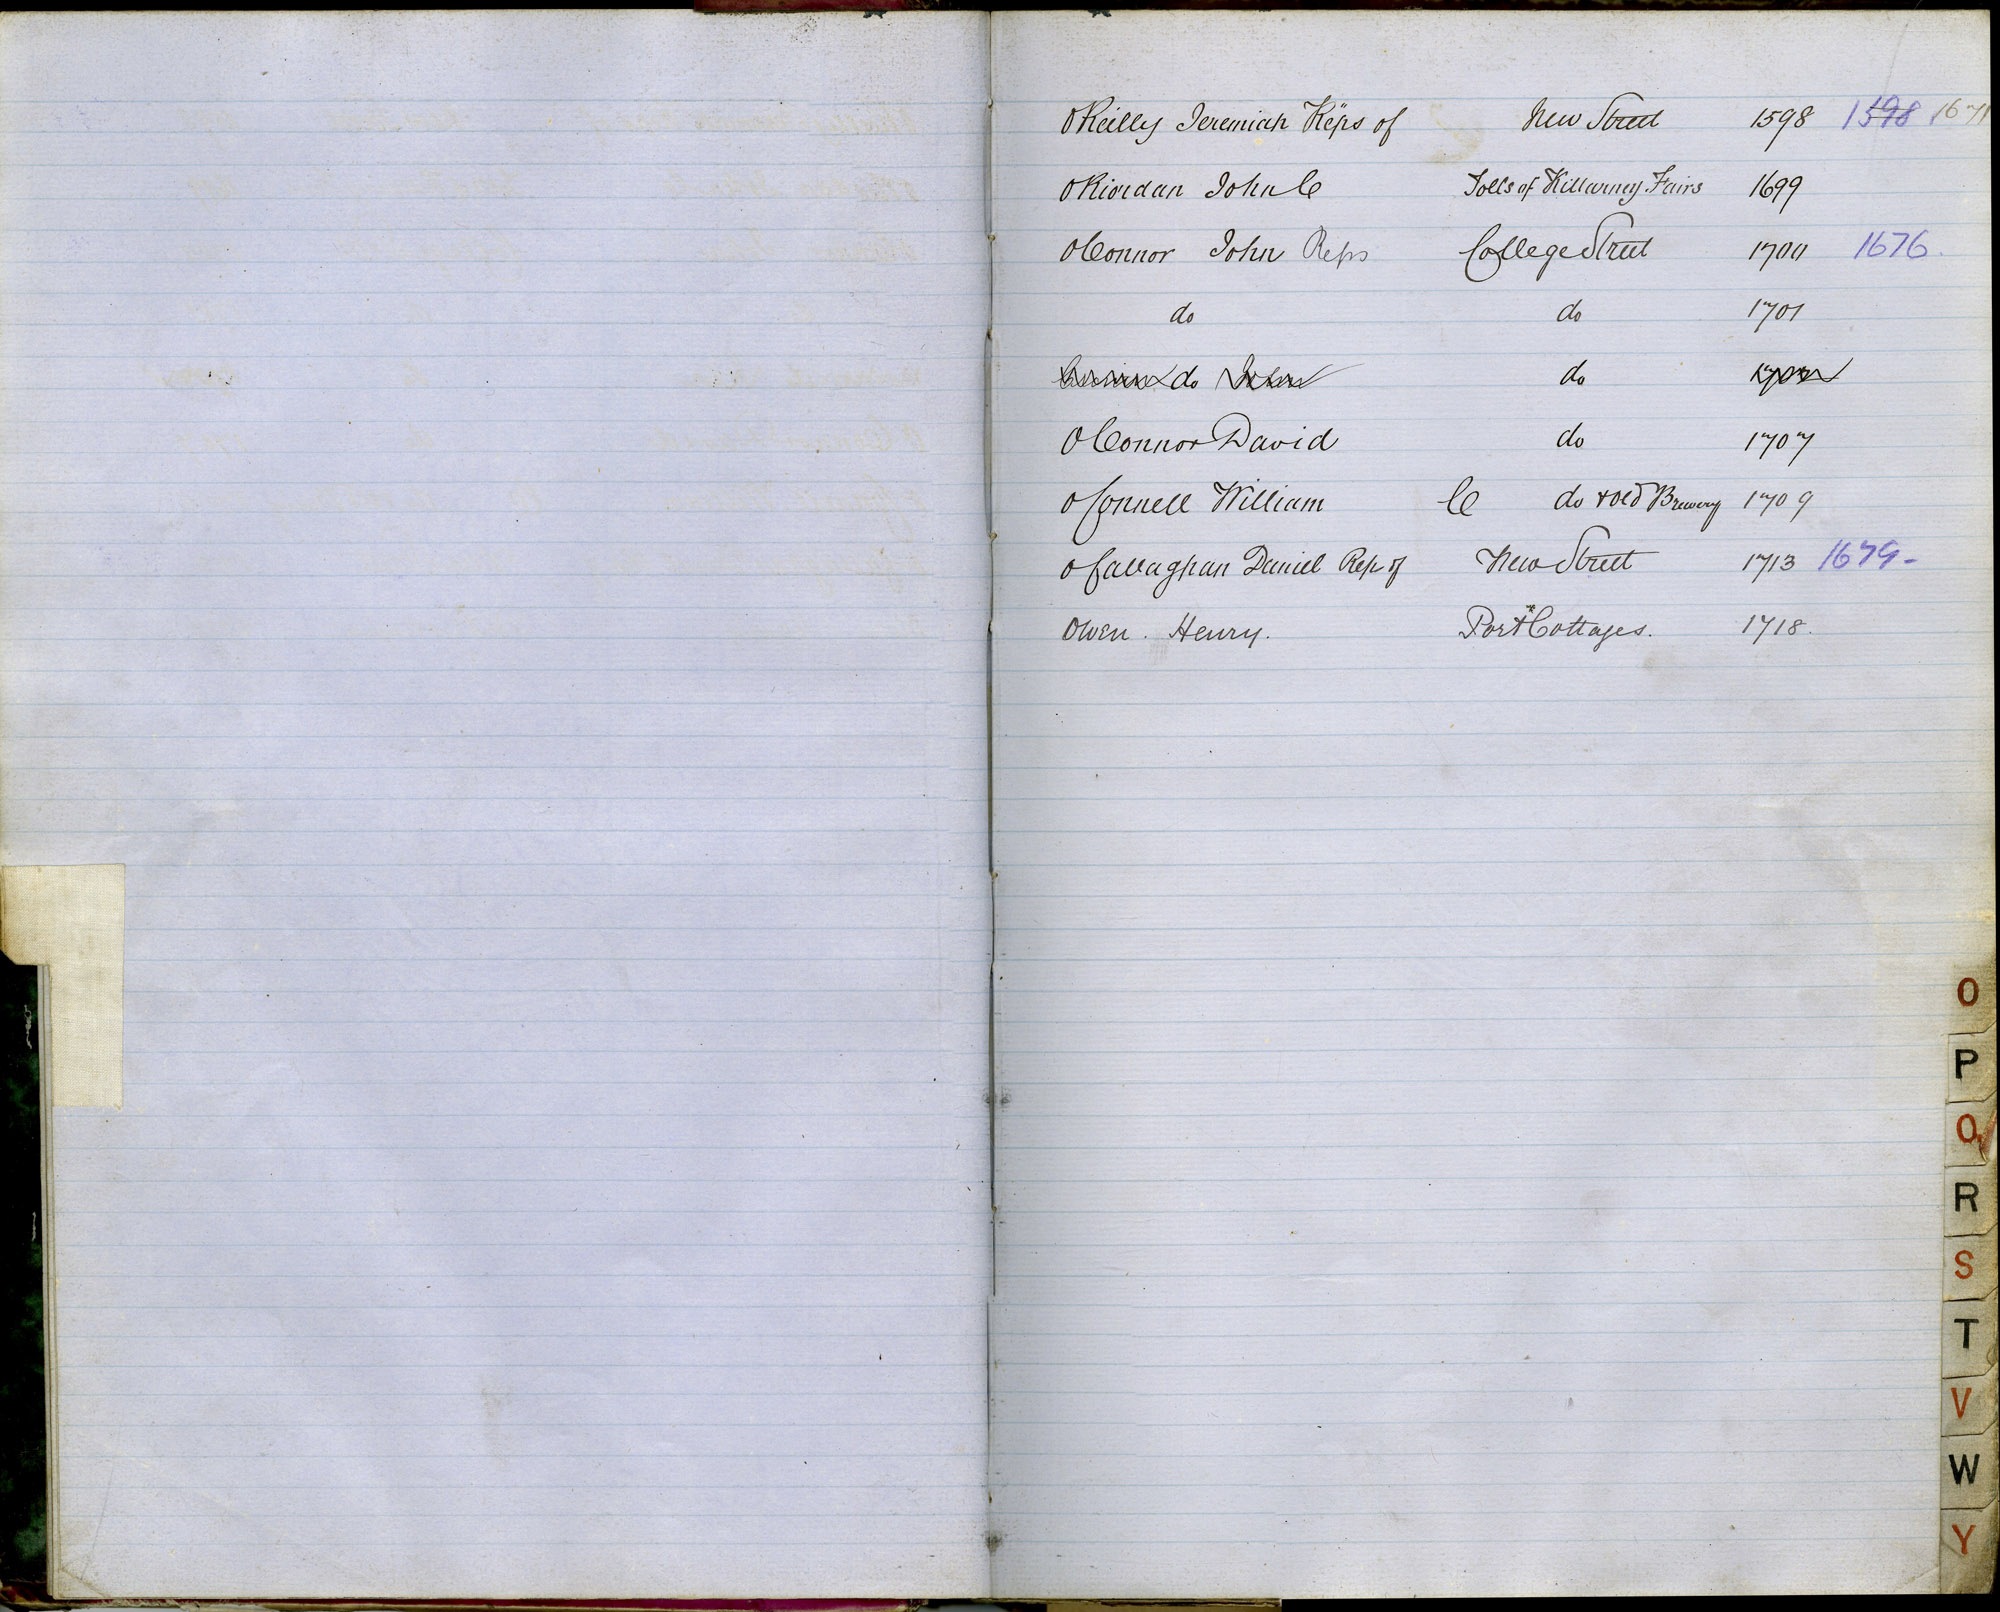 OReilly Jeremiah Reps of New Street 1598 1598 1671
ORiordan John C Tolls of Killarney Fairs 1699
OConnor John Reps College Street 1700 1676.
do do 1701
do John do 1702
OConnor David do 1707
OConnell William C do & old Brewery 1709
OCallaghan Daniel Rep of New Street 1713 1679-
Owen. Henry. Port Cottages. 1718.
O
P
Q
R
S
T
V
W
Y